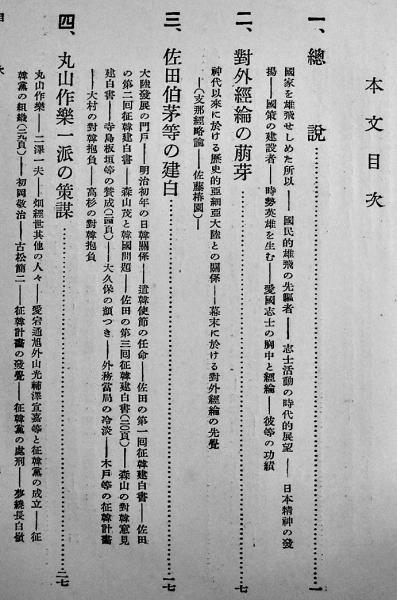 本文目次
一、總說……一
國家を雄飛せしめた所以――國民的雄飛の先驅者――志士活動の時代的展望――日本精神の發
揚――國策の建設者――時勢英雄を生む――愛國志士の胸中と經綸――彼等の功績
二、對外經論の萠芽……七
神代以來に於ける歷史的亞細亞大陸との關係――幕末に於ける對外經綸の先覺
――(支那經略論――佐藤椿園)――
三、佐田伯茅等の建白……一七
大陸發展の門戶――明治初年の日韓關係――遣韓使節の任命――佐田の第一回征韓建白書――佐田
の第二回征韓建白書――森山茂と韓國問題――佐田の第三回征韓建白書(二〇頁)――森山の對韓意見
建白書――寺島板垣等の贊成(二四頁)――大久保の頷つき――外務當局の冷淡――木戶等の征韓計畫
――大村の對韓抱負――高杉の對韓抱負
四、丸山作樂一派の策謀……二七
丸山作樂――二澤一夫――畑經世其他の人々――愛宕通旭外山光輔澤宣嘉等と征韓黨の成立――征
韓黨の組織(二九頁)――初岡敬治――古松簡二――征韓計畫の發覺――征韓黨の處刑――夢繞長白嶺
目次